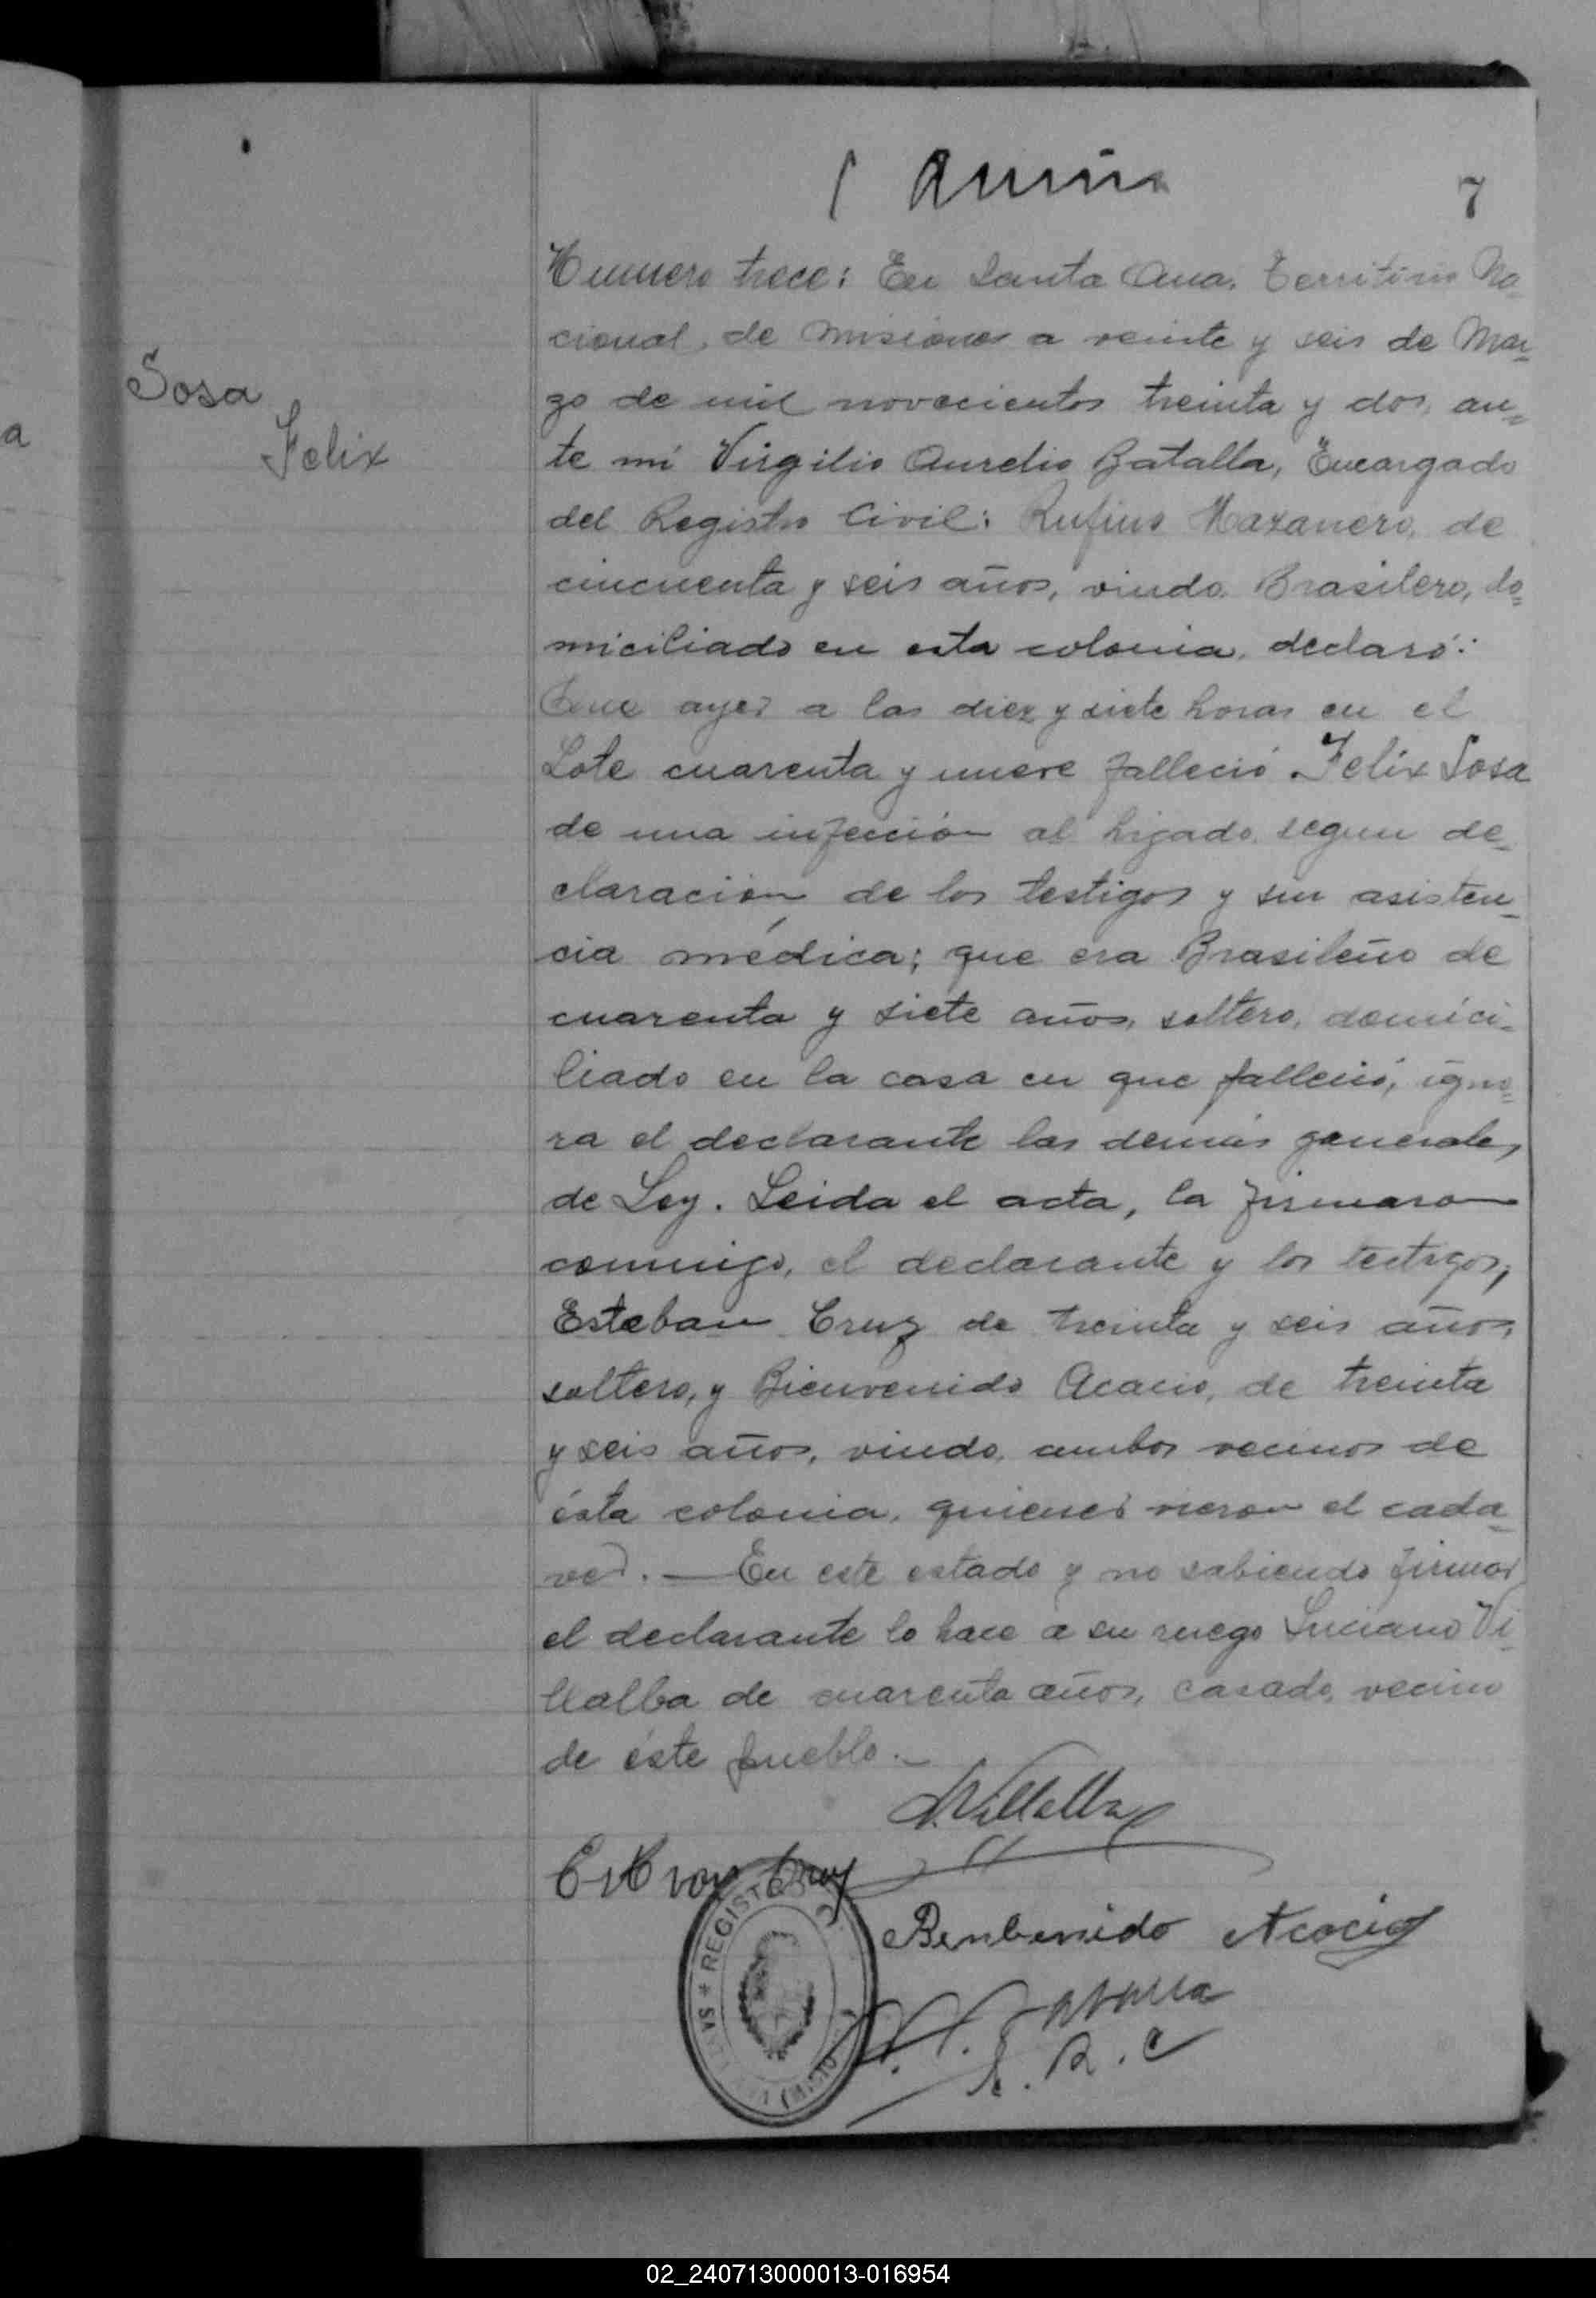 7
Numero trece: En Santa Ana, Territorio Na-
cional, de Misiones a veinte y seis de Mar-
zo de mil novecientos treinta y dos, an-
te mi Virgilio Aurelio Batalla, Encargado
Sosa
Felix
a
del Registro Civil: Rufino de
cincuenta y seis años, viudo, Brasilero, do-
miciliado en esta colonia, declaró:
Que ayer a las diez y siete horas en el
Lote cuarenta y nueve falleció Felix Sosa
de una infección al higado, segun de-
claración de los testigos y sin asisten-
cia médica; que era Brasileño de
cuarenta y siete años, soltero, domici-
liado en la casa en que falleció, igno-
ra el declarante las demás generales
de Ley. Leida el acta, la firmaron
conmigo, el declarante y los testigos,
Esteban Cruz de treinta y seis años,
soltero, y Bienvenido Acacio, de treinta
y seis años, viudo, ambos vecinos de
ésta colonia, quienes vieron el cada-
ver. — En este estado y no sabiendo firmar
el declarante lo hace a su ruego Luciano Vi-
llalba de cuarenta años, casado, vecino
de éste pueblo.—
L. Villalba
Cruz
Benbenido Acocio
REGISTRO
V. A. Batalla
E. R. C
02_240713000013-016954